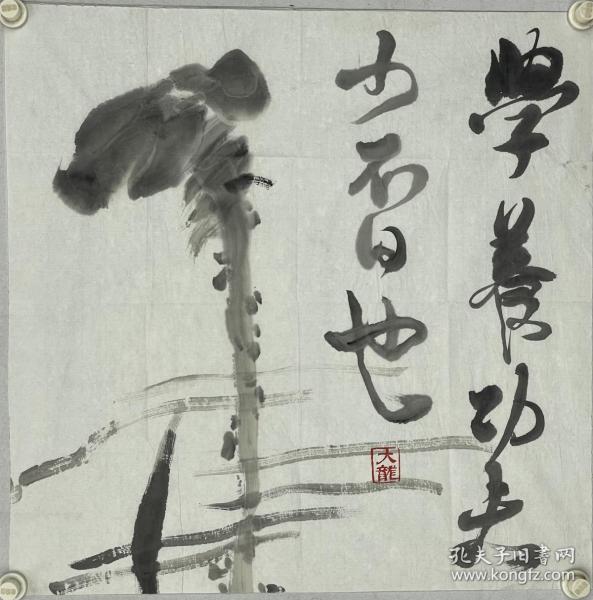 學養功夫
少不也
天龍
孔夫子旧書网
www.kongfz.com